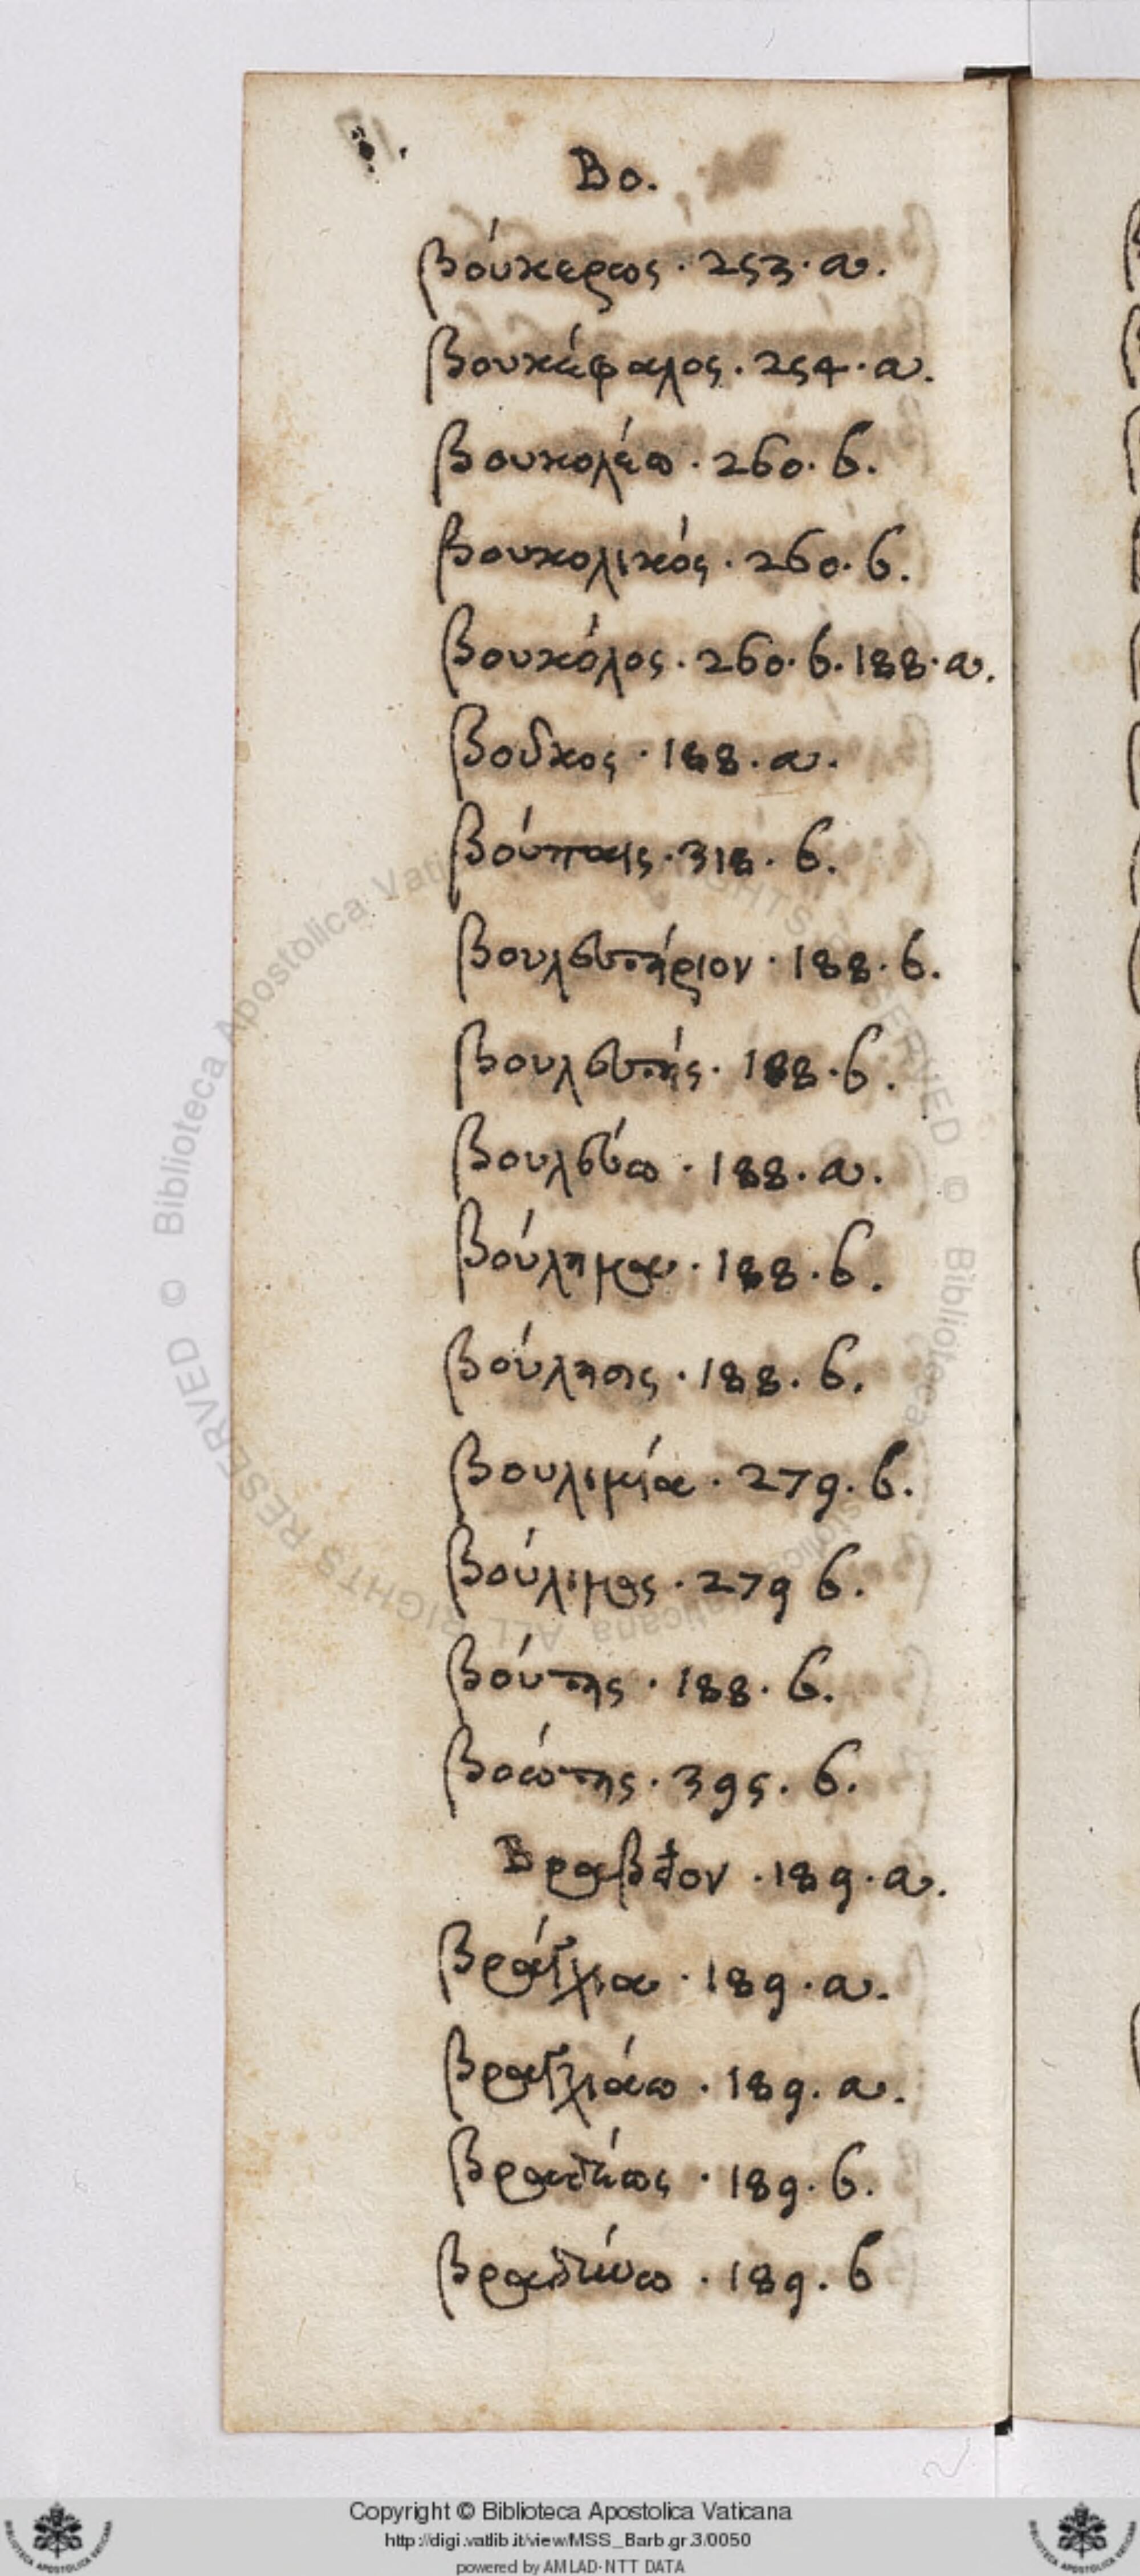 Βο.
βούκερως · 253 · α.
βουκέφαλος · 254 · α.
βουκολέω · 260 · б.
βουκολικός · 260 · б.
βουκόλος · 260 · б. 188 · α.
βοῦκος · 188 · α.
βούπαις · 318 · б.
βουλευτήριον · 188 · б.
βουλευτής · 188 · б.
βουλεύω · 188 · α.
βούλημα · 188 · б.
βούλησις · 188 · б.
βουλιμία · 279 · б.
βούλιμος · 279 б.
βούτης · 188 · б.
βοώτης · 395 · б.
Βραβεῖον · 189 · α.
βράγχια · 189 · α.
βραγχιάω · 189 · α.
βραδέως · 189 · б.
βραδύνω · 189 · б
© Biblioteca Apostolica Vaticana ALL RIGHTS RESERVED
Copyright © Biblioteca Apostolica Vaticana
http://digi.vatlib.it/view/MSS_Barb.gr.3/0050
powered by AMLAD-NTT DATA